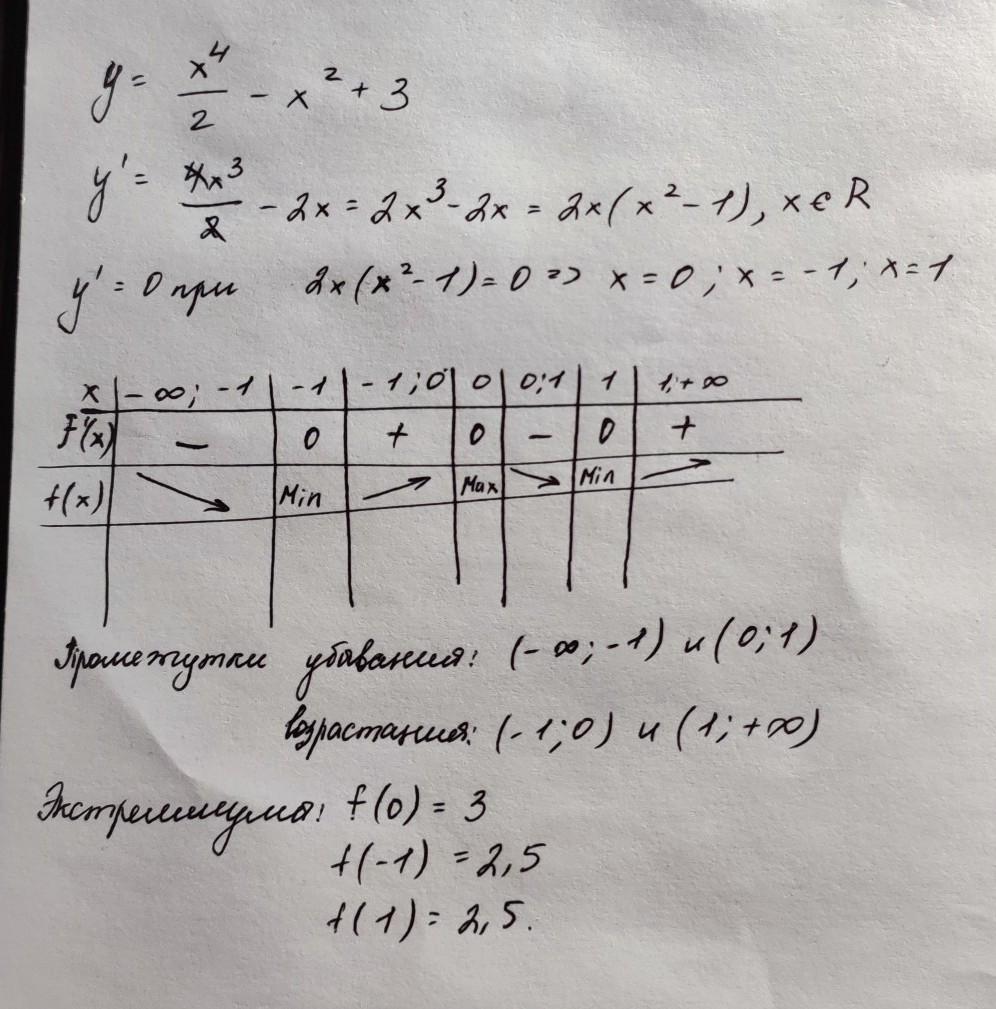 y = x⁴/2 - x² + 3
y' = 4x³/2 - 2x = 2x³ - 2x = 2x(x² - 1), x ∈ R
y' = 0 при 2x(x² - 1) = 0 => x = 0; x = -1; x = 1
x | -∞; -1 | -1 | -1; 0 | 0 | 0; 1 | 1 | 1; +∞
F'(x) | - | 0 | + | 0 | - | 0 | +
f(x) | ↘ | Min | ↗ | Max | ↘ | Min | ↗
Промежутки убывания: (-∞; -1) и (0; 1)
возрастания: (-1; 0) и (1; +∞)
Экстреммума: f(0) = 3
f(-1) = 2,5
f(1) = 2,5.